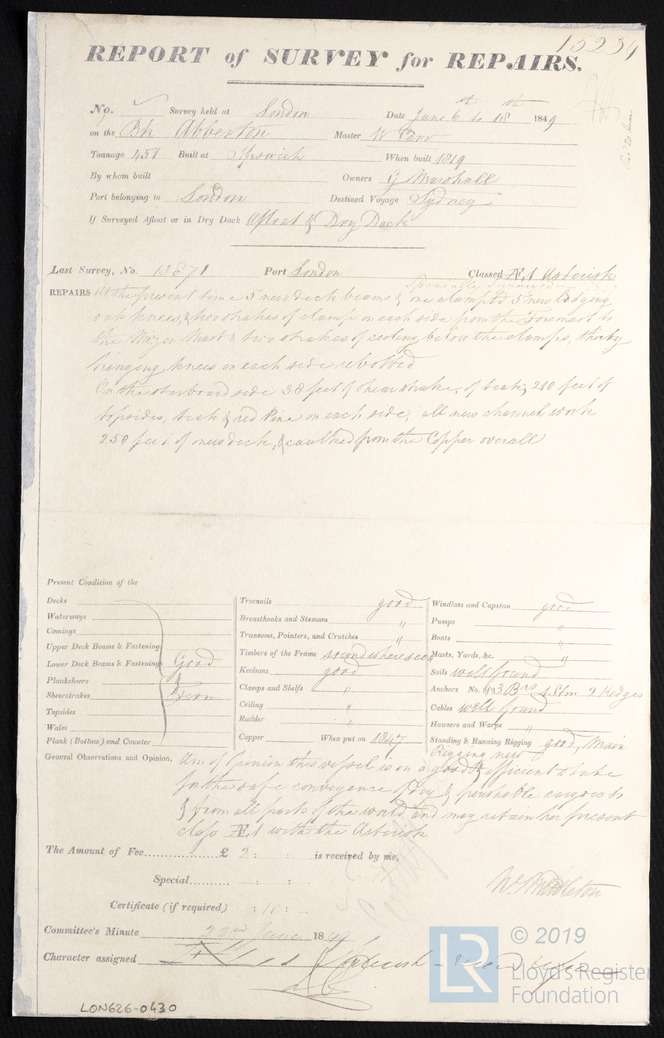 15234
REPORT of SURVEY for REPAIRS.
No. Survey held at London Date June 6th to 18th 1849
on the Bk Abberton Master W Parr
Tonnage 451 Built at Ipswich When built 1819
By whom built Owners G Marshall
Port belonging to London Destined Voyage Sydney
If Surveyed Afloat or in Dry Dock Afloat & Dry Dock
Last Survey, No. 13871 Port London Classed Æ1 Asterisk
REPAIRS At the present time 5 new deck beams & one clamp'd 5 new lodging
oak knees, & two strakes of clamp on each side from the Foremast to
the Mizen Mast & two strakes of ceiling below the clamps, thirty
hanging knees on each side rebolted
On the starboard side 38 feet of shearstrake, of teak; 210 feet of
topsides, teak & red Pine on each side, all new channel work
250 feet of new deck, & caulked from the Copper overall
Present Condition of the
Decks
Waterways
Comings
Upper Deck Beams & Fastening
Lower Deck Beams & Fastening Good
Planksheers &
Sheerstrakes Firm
Topsides
Wales
Plank (Bottom) and Counter
Treenails good
Breasthooks and Stemson "
Transons, Pointers, and Crutches "
Timbers of the Frame sound where seen
Keelsons good
Clamps and Shelfs "
Ceiling "
Rudder "
Copper When put on 1847
Windlass and Capstan good
Pumps "
Boats "
Masts, Yards, &c. "
Sails well found
Anchors No. 3 Brs 1 Stm 2 Kedges
Cables well found
Hausers and Warps "
Standing & Running Rigging good, Main
Rigging new
General Observations and Opinion, Am of Opinion this vessel is in a good & efficient state
for the safe conveyance of dry & perishable cargoes to
& from all parts of the world and may retain her present
class Æ1 with the Asterisk
The Amount of Fee £ 2 : : is received by me,
Special : :
Certificate (if required) : 10 : -
Wm Middleton
Committee's Minute 22nd June 1849
Character assigned
LON626-0430
LR © 2019
Lloyd's Register
Foundation